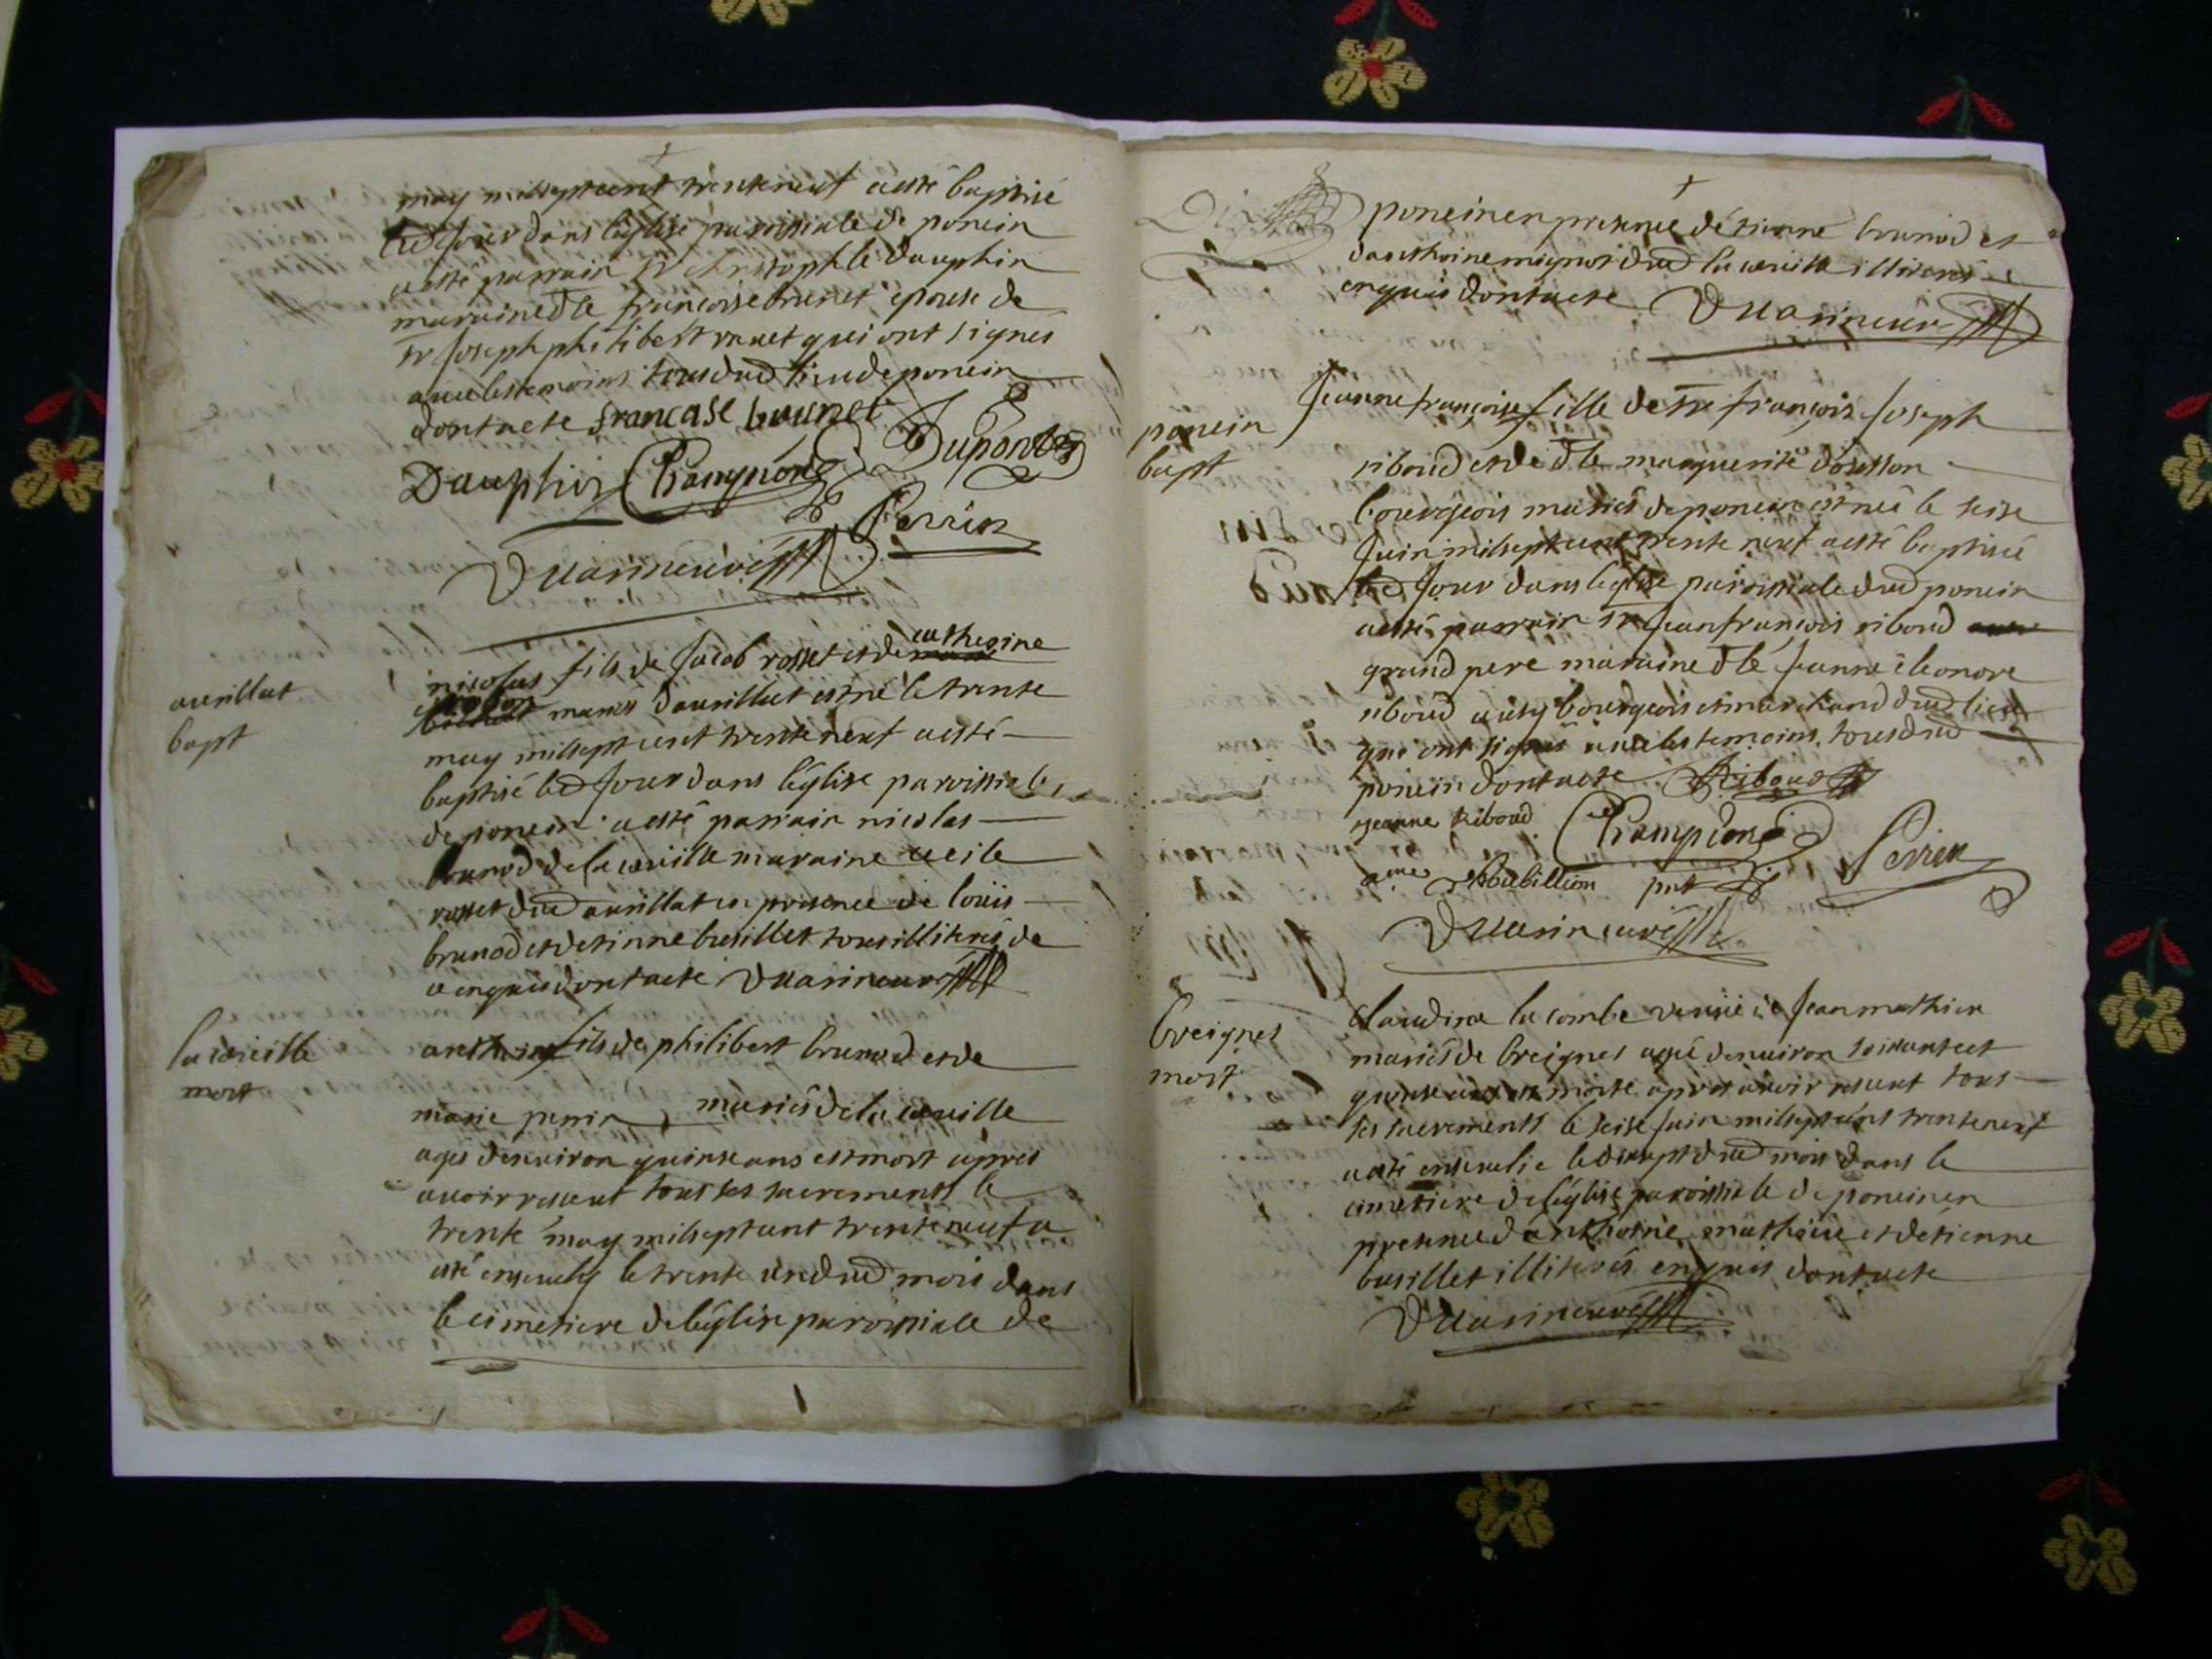 may milseptcent trenteneuf aesté baptisé
led jour dans l'église paroissiale de poncin
aesté parrain sr christophle dauphin
maraine dlle francoise brunet épouse de
sr joseph philibert ravet qui ont signés
avec les temoins tous dud lieu de poncin
dont acte francase bournet
Dauphin Champion Dupont
Perrin
Duuarin curé
avrillat
bapt
nicolas fils de jacob rosset et de catherine
mariés davrillat est né le trente
may milsept cent trenteneuf aesté
baptisé led jour dans l'église paroissiale
de poncin aesté parrain nicolas
brunod de la cueille maraine cecile
rosset dud avrillat en presence de loüis
brunod et detienne busillet tous illiterés de
ce enquis dont acte Duuarin curé
la cueille
mort
anthoine fils de philibert brunod et de
marie perrin mariés de la cueille
agés denuiron quinse ans est mort après
avoir reseut tous ses sacrements le
trente may milseptcent trenteneuf a
esté ensevely le trente un dud mois dans
le cimetiere de l'église paroissiale de
poncin en presence détienne brunod et
danthoine mignot dud la cueille illiterés
enquis dont acte Duuarin curé
poncin
bapt
Jeanne françoise fille de sr françois joseph
riboud et de dlle marguerite
bourgeois mariés de poncin est née le seise
juin milseptcent trente neuf aesté baptisée
led jour dans l'église paroissiale dud poncin
aesté parrain sr jean françois riboud
grand pere maraine dlle jeanne éleonore
riboud aussy bourgeois et marchand dud lieu
qui ont signés avec les temoins tous dud
poncin dont acte Riboud
jeanne Riboud Champion Perrin
Robubillion pnt
Duuarin curé
breignes
mort
Claudine la combe veusue de jean mathieu
mariés de breignes agée denuiron soixante et
quinse ans est morte apres avoir reseut tous
ses sacrements le seise juin milseptcent trenteneuf
aesté ensevelie le dixsept dud mois dans le
cimetiere de l'église paroissiale de poncin en
presence danthoine mathieu et detienne
busillet illiterés enquis dont acte
Duuarin curé